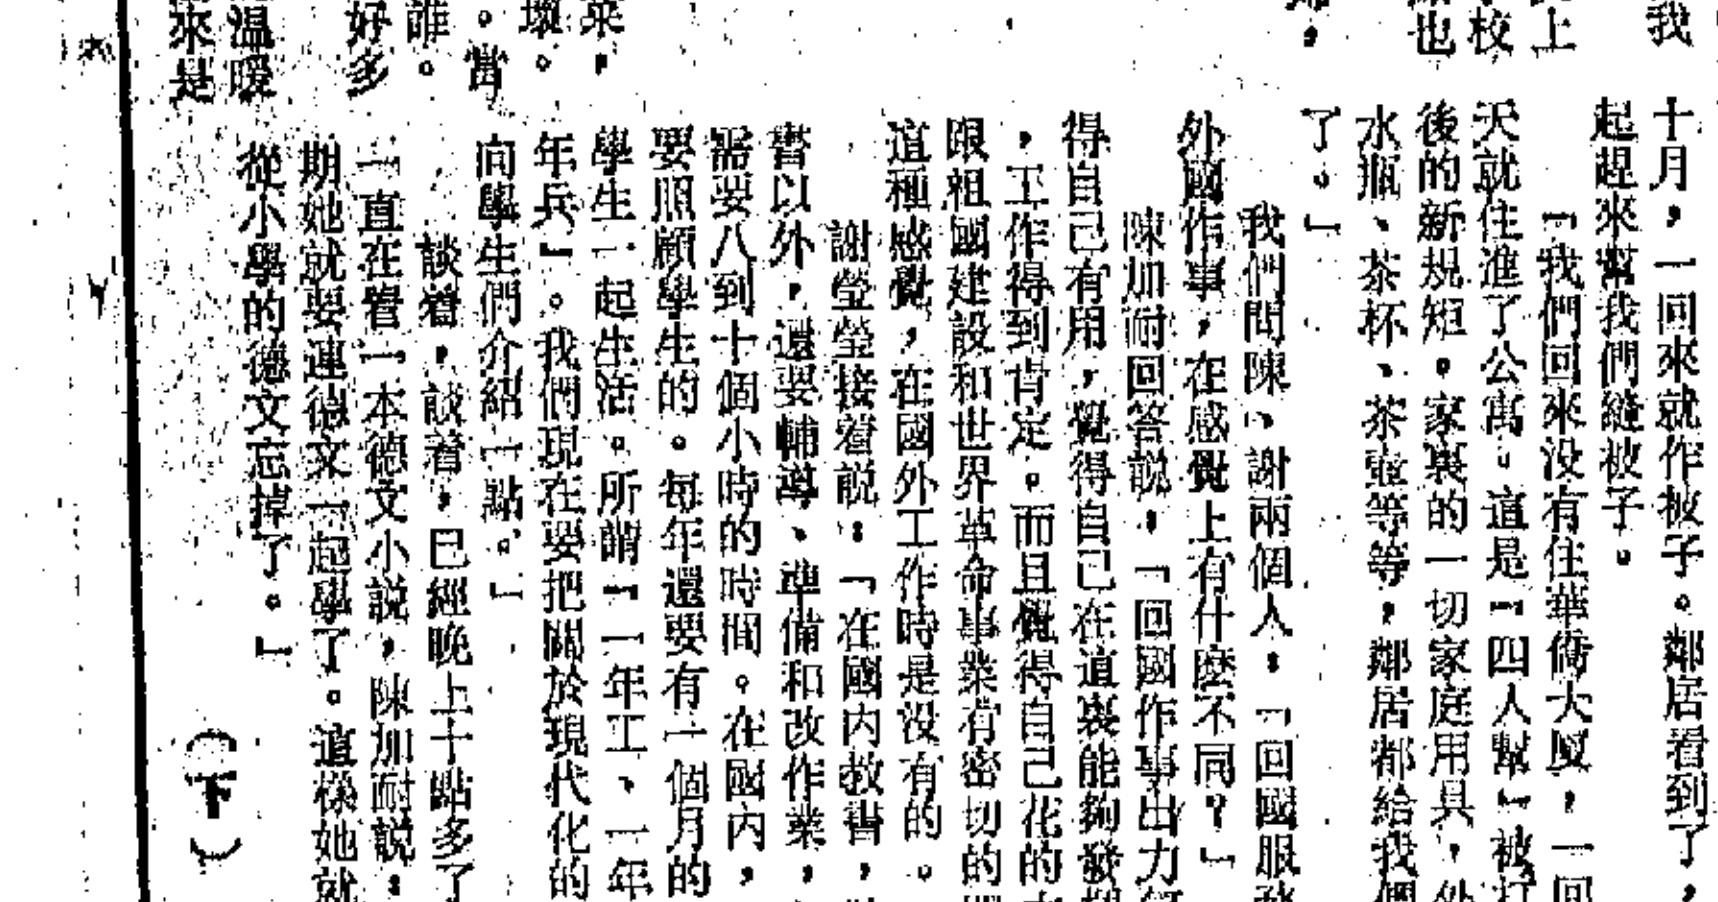 我
上
校
也
菜，
壞。
。當
誰。
好多
溫暖
來是
十月，一回來就作被子。鄰居看到了，
起趕來幫我們縫被子。
「我們回來没有住華僑大厦，一回
天就住進了公寓。這是「四人幫」被打
後的新規矩。家裏的一切家庭用具，外
水瓶、茶杯、茶壺等等，鄰居都給我們
了。」
我們問陳、謝兩個人：「回國服務
外國作事，在感覺上有什麽不同？」
陳加耐回答説：「回國作事出力
得自己有用，覺得自己在這裏能夠發揮
，工作得到肯定。而且覺得自己花的
跟祖國建設和世界革命事業有密切的
這種感覺，在國外工作時是没有的。
謝瑩瑩接着説：「在國内教書，
書以外，還要輔導、準備和改作業，
需要八到十個小時的時間。在國内，
要照顧學生的。每年還要有一個月的
學生一起生活。所謂「一年工、一年
年兵」。我們現在要把關於現代化的
向學生們介紹一點。」
談着，談着，已經晚上十點多了
一直在看一本德文小説，陳加耐説：
期她就要連德文一起學了。這樣她就
從小學的德文忘掉了。」
（下）